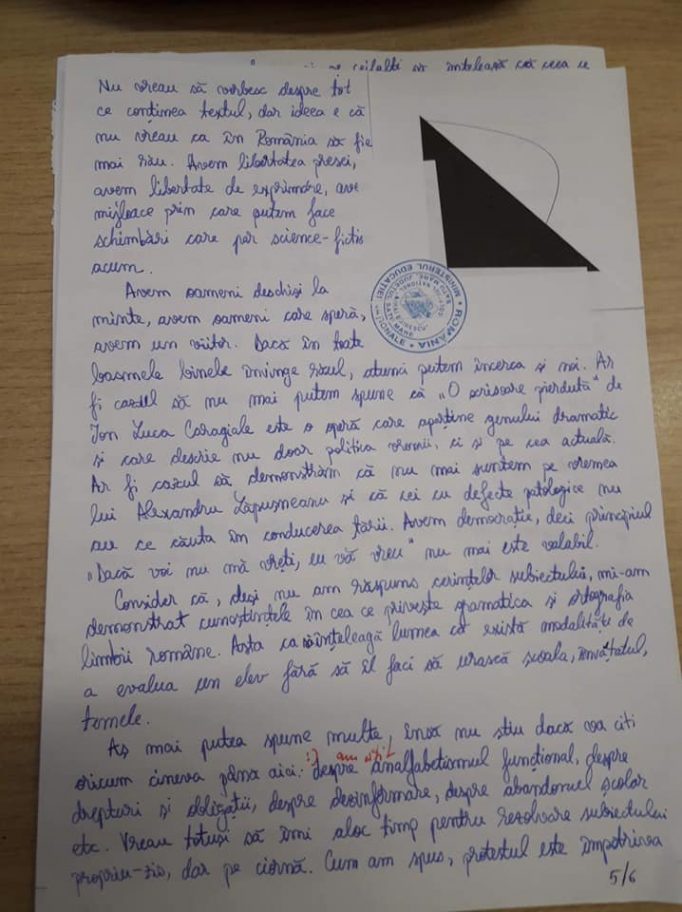 și ceilalți să înțeleagă că ceea ce
Nu vreau să vorbesc despre tot
ce conținea textul, dar ideea e că
nu vreau ca în România să fie
mai rău. Avem libertatea presei,
avem libertate de exprimare, ave
mijloace prin care putem face
schimbări care par science-fictio
acum.
Avem oameni deschiși la
minte, avem oameni care speră,
avem un viitor. Dacă în toate
basmele binele învinge răul, atunci putem încerca și noi. Ar
fi cazul să nu mai putem spune că „O scrisoare pierdută" de
Ion Luca Caragiale este o operă care aparține genului dramatic
și care descrie nu doar politica vremii, ci și pe cea actuală.
Ar fi cazul să demonstrăm că nu mai suntem pe vremea
lui Alexandru Lăpușneanu și că cei cu defecte patologice nu
au ce căuta în conducerea țării. Avem democrație, deci principiul
„Dacă voi nu mă vreți, eu vă vreu" nu mai este valabil.
Consider că, deși nu am răspuns cerințelor subiectului, mi-am
demonstrat cunoștințele în cea ce privește gramatica și ortografia
limbii române. Asta ca să înțeleagă lumea că există modalități de
a evalua un elev fără să îl faci să urască școala, învățatul,
temele.
Aș mai putea spune multe, însă nu știu dacă va citi
oricum cineva până aici. :) am citit
despre analfabetismul funcțional, despre
drepturi și obligații, despre dezinformare, despre abandonul școlar
etc. Vreau totuși să îmi aloc timp pentru rezolvare subiectului
propriu-zis, dar pe ciornă. Cum am spus, protestul este împotriva
5/6
ROMÂNIA
MINISTERUL EDUCAȚIEI NAȚIONALE